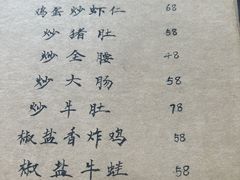 鸡蛋炒虾仁 68
炒猪肚 58
炒全腰 48
炒大肠 58
炒牛肚 78
椒盐香炸鸡 58
椒盐牛蛙 58